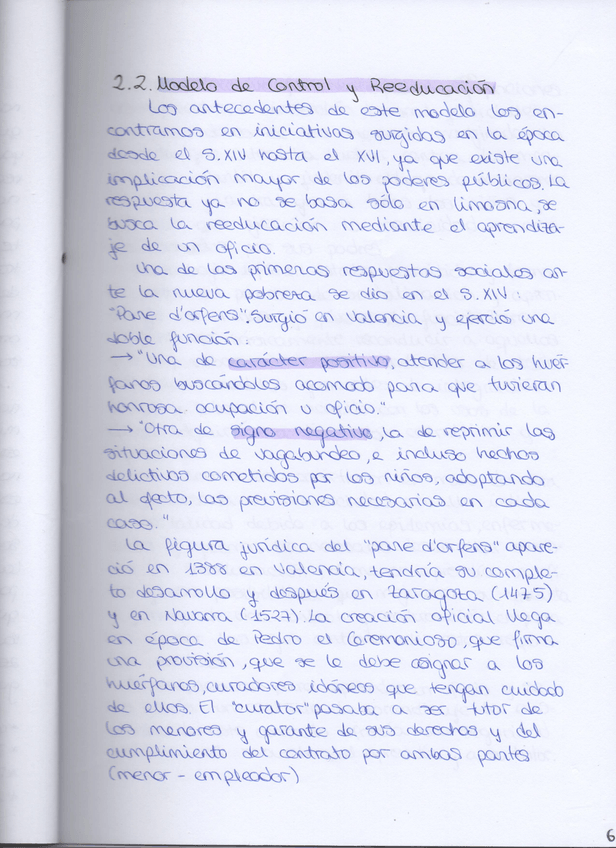 2.2. Modelo de Control y Reeducación
Los antecedentes de este modelo los en-
contramos en iniciativas surgidas en la época
desde el S.XIV hasta el XVI, ya que existe una
implicación mayor de los poderes públicos. La
respuesta ya no se basa sólo en limosna, se
busca la reeducación mediante el aprendiza-
je de un oficio.
Una de las primeras respuestas sociales an-
te la nueva pobreza se dio en el S.XIV:
"Pare d'orfens". Surgió en Valencia y ejerció una
doble función:
→ "Una de carácter positivo, atender a los huér-
fanos buscándoles acomodo para que tuvieran
honrosa ocupación u oficio."
→ "Otra de signo negativo, la de reprimir las
situaciones de vagabundeo, e incluso hechos
delictivos cometidos por los niños, adoptando
al efecto, las previsiones necesarias en cada
caso."
La figura jurídica del "pare d'orfens" apare-
ció en 1388 en Valencia, tendría su comple-
to desarrollo y después en Zaragoza (1475)
y en Navarra (1527). La creación oficial llega
en época de Pedro el Ceremonioso, que firma
una provisión, que se le debe asignar a los
huérfanos, curadores idóneos que tengan cuidado
de ellos. El "curator" pasaba a ser tutor de
los menores y garante de sus derechos y del
cumplimiento del contrato por ambas partes
(menor - empleador)
6